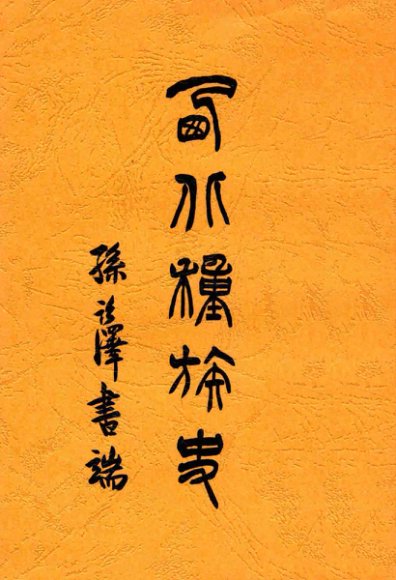 西北種族史
孫詒澤書端